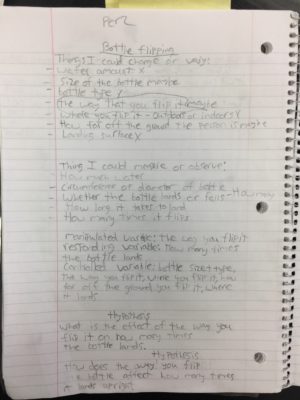 Per 2
Bottle flipping
Things I could change or vary:
- Water amount X
- Size of the bottle maybe
- bottle type
The way that you flip it maybe
- Where you flip it - outdoors or indoors X
- How far off the ground the person is maybe
- Landing surface X
Things I could measure or observe:
How much water
- Circumference or diameter of bottle
- Whether the bottle lands or falls - How many
How long it takes to land
- How many times it flips
manipulated variable: The way you flip it
responding variable: How many times
the bottle lands
Controlled variable: bottle size + type,
The way you flip it, where you flip it, how
far off the ground you flip it, where
it lands
Hypothesis
What is the effect of the way you
flip it on how many times
the bottle lands.
Hypothesis
How does the way you flip
a bottle affect how many times
it lands upright